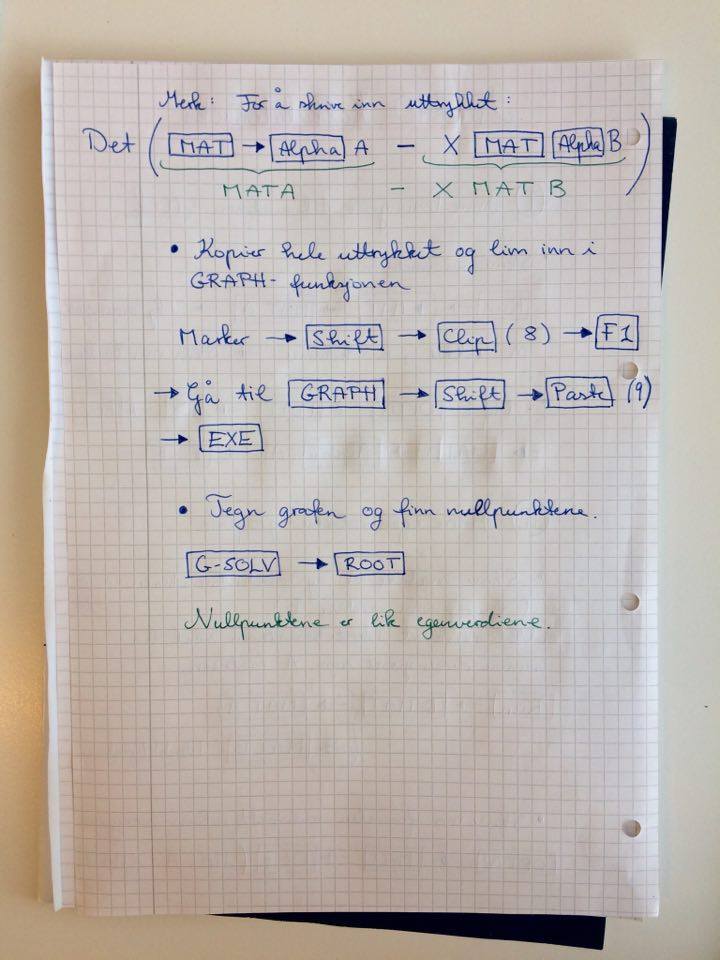 Merk: For å skrive inn uttrykket:
Det ( MAT → Alpha A - X MAT Alpha B )
MAT A - X MAT B
• Kopier hele uttrykket og lim inn i
GRAPH-funksjonen
Marker → Shift → Clip (8) → F1
→ Gå til GRAPH → Shift → Paste (9)
→ EXE
• Tegn grafen og finn nullpunktene.
G-SOLV → ROOT
Nullpunktene er lik egenverdiene.